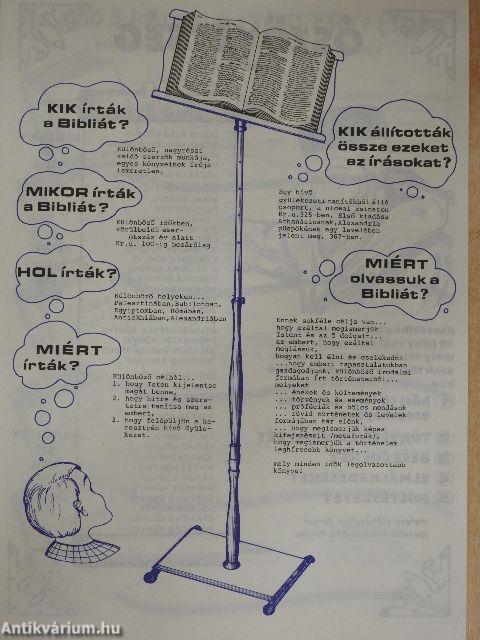 KIK írták
a Bibliát?
Különböző, nagyrészt
zsidó szerzők munkája,
egyes könyveinek írója
ismeretlen.
MIKOR írták
a Bibliát?
Különböző időkben,
körülbelül ezer-
ötszáz év alatt
Kr.u. 100-ig bezárólag
HOL írták?
Különböző helyeken...
Palesztinában, Babilonban,
Egyiptomban, Rómában,
Antiókhiában, Alexandriában
MIÉRT
írták?
Különböző célból...
1. hogy Isten kijelentse
magát benne,
2. hogy hitre és szere-
tetre tanítsa meg az
embert,
3. hogy felépüljön a ke-
resztyén hívő Gyüle-
kezet.
KIK állították
össze ezeket
az írásokat?
Egy hívő
gyülekezeti tanítókból álló
csoport, a niceai zsinaton
Kr.u.325-ben. Első kiadása
Athanásiusnak, Alexandria
püspökének egy levelében
jelent meg, 367-ben.
MIÉRT
olvassuk a
Bibliát?
Ennek sokféle célja van...
hogy ezáltal megismerjük
Istent és az Ő dolgait...
az embert, hogy ezáltal
meglássuk,
hogyan kell élni és cselekedni
...hogy emberi tapasztalatokban
gazdagodjunk, különböző irodalmi
formában írt történeteiből...
melyeket
... énekek és költemények
... törvények és események
... próféciák és bölcs mondások
... rövid történetek és levelek
formájában tár elénk,
... hogy megismerjük képes
kifejezéseit /metaforák/,
hogy megismerjük a történelem
leghíresebb könyvét...
mely minden idők legolvasottabb
könyve!
Antikvárium.hu